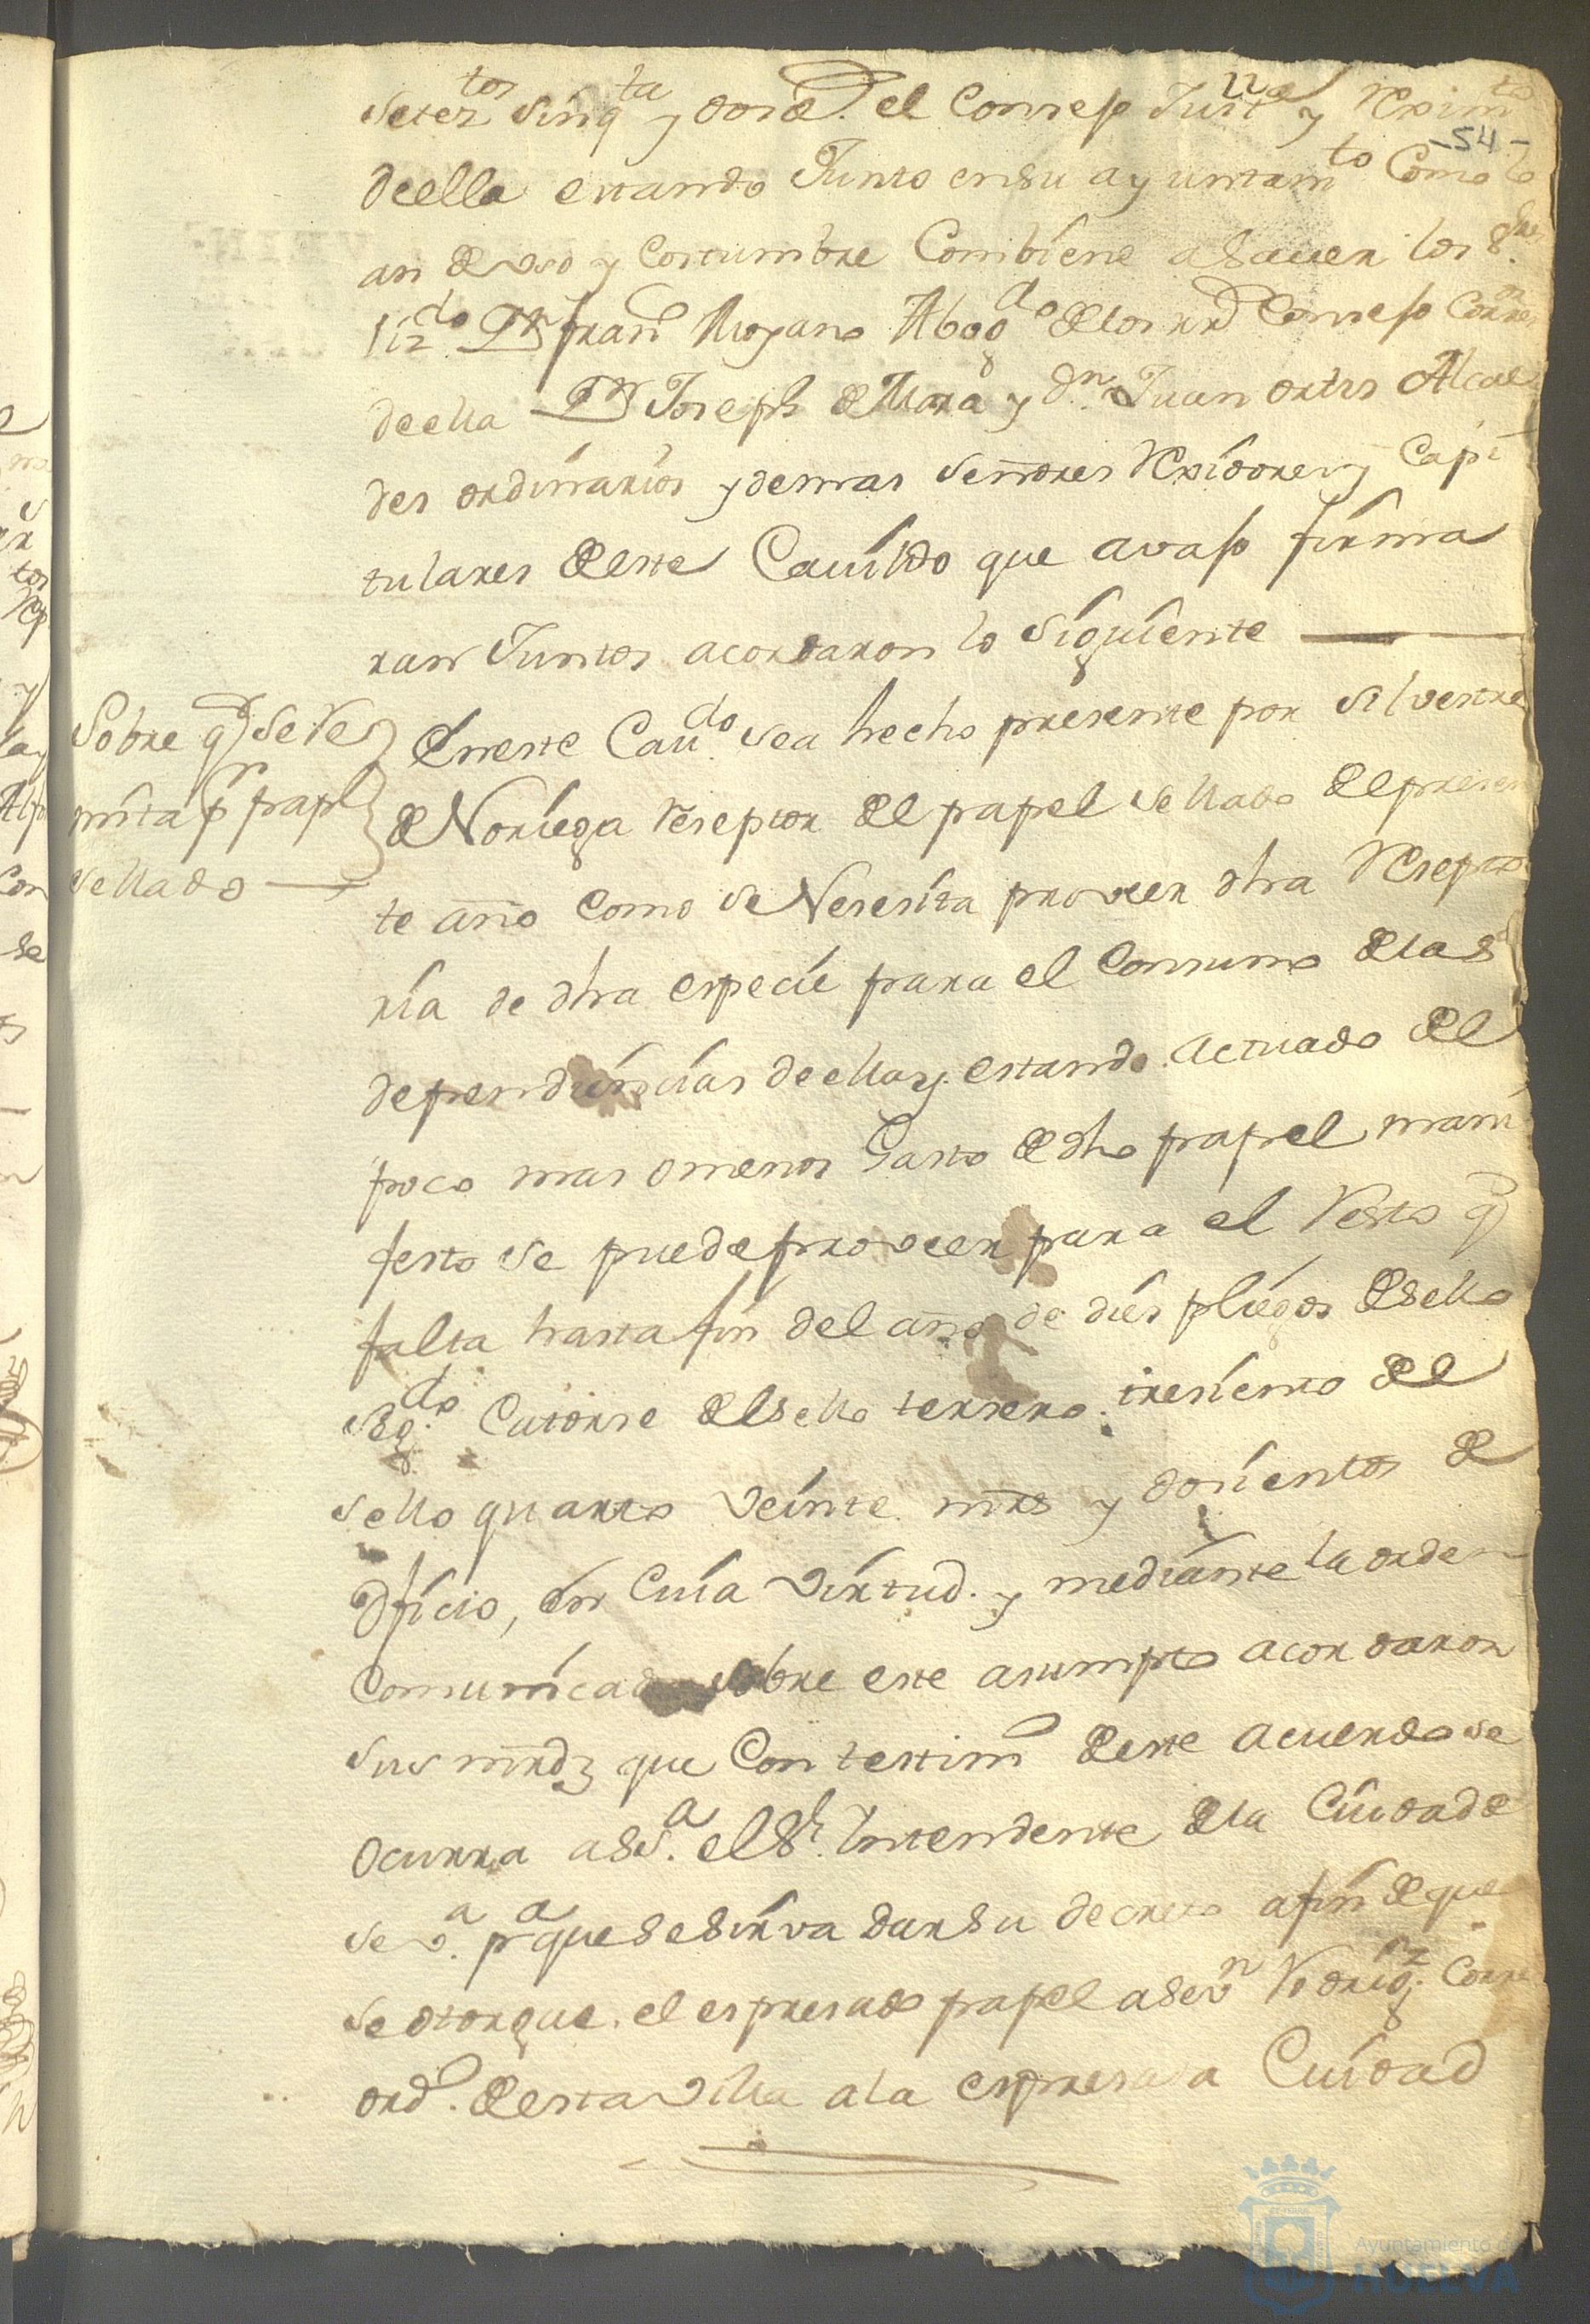 setez.tos sinq.ta y dos a.s el Consejo Just.a y Reximto
-54-
de ella estando Junto en su ayuntam.to Como lo
an de uso y Costumbre Combiene a Saver los S.res
Liz.do Dn fran.co Moyano Abog.do de los R.s Consejos Corre.or
de ella Dn Joseph de Mora y Dn Juan ortis Alcal
des ordinarios y demas Señores Rexidores y Capi
tulares de este Cavildo que avajo firma
ran Juntos acordaron lo Siguiente
Sobre q.e se Re
mita p.r papl
sellado
En este Cau.do sea hecho presente por Silvestre
de Noriega reseptor del papel sellado del presen
te año como se Nesesita proveer otra Resepto
ria de dha especie para el Consumo de las
dependiencias de ella y estando actuado del
poco mas o menos Gasto de dho papel mani
festo se puede proveer para el resto q.e
falta hasta fin del año de dies pliegos de sello
seg.do Catorse del sello tersero tresientos del
sello quarto veinte mrs y dosientos de
oficio, en Cuia virtud y mediante la orden
Comunicada sobre este asumpto acordaron
sus mrds que Con testim.o de este acuerdo se
ocurra a Su S.a el Sr. Intendente de la Ciudad de
Sev.a p.a que se Sirva dar su decreto a fin de que
se otorgue el espresado papel a Sev.n Rodrig.z Corre
ord.o de esta villa a la espresada Ciudad
Ayuntamiento de
HUELVA